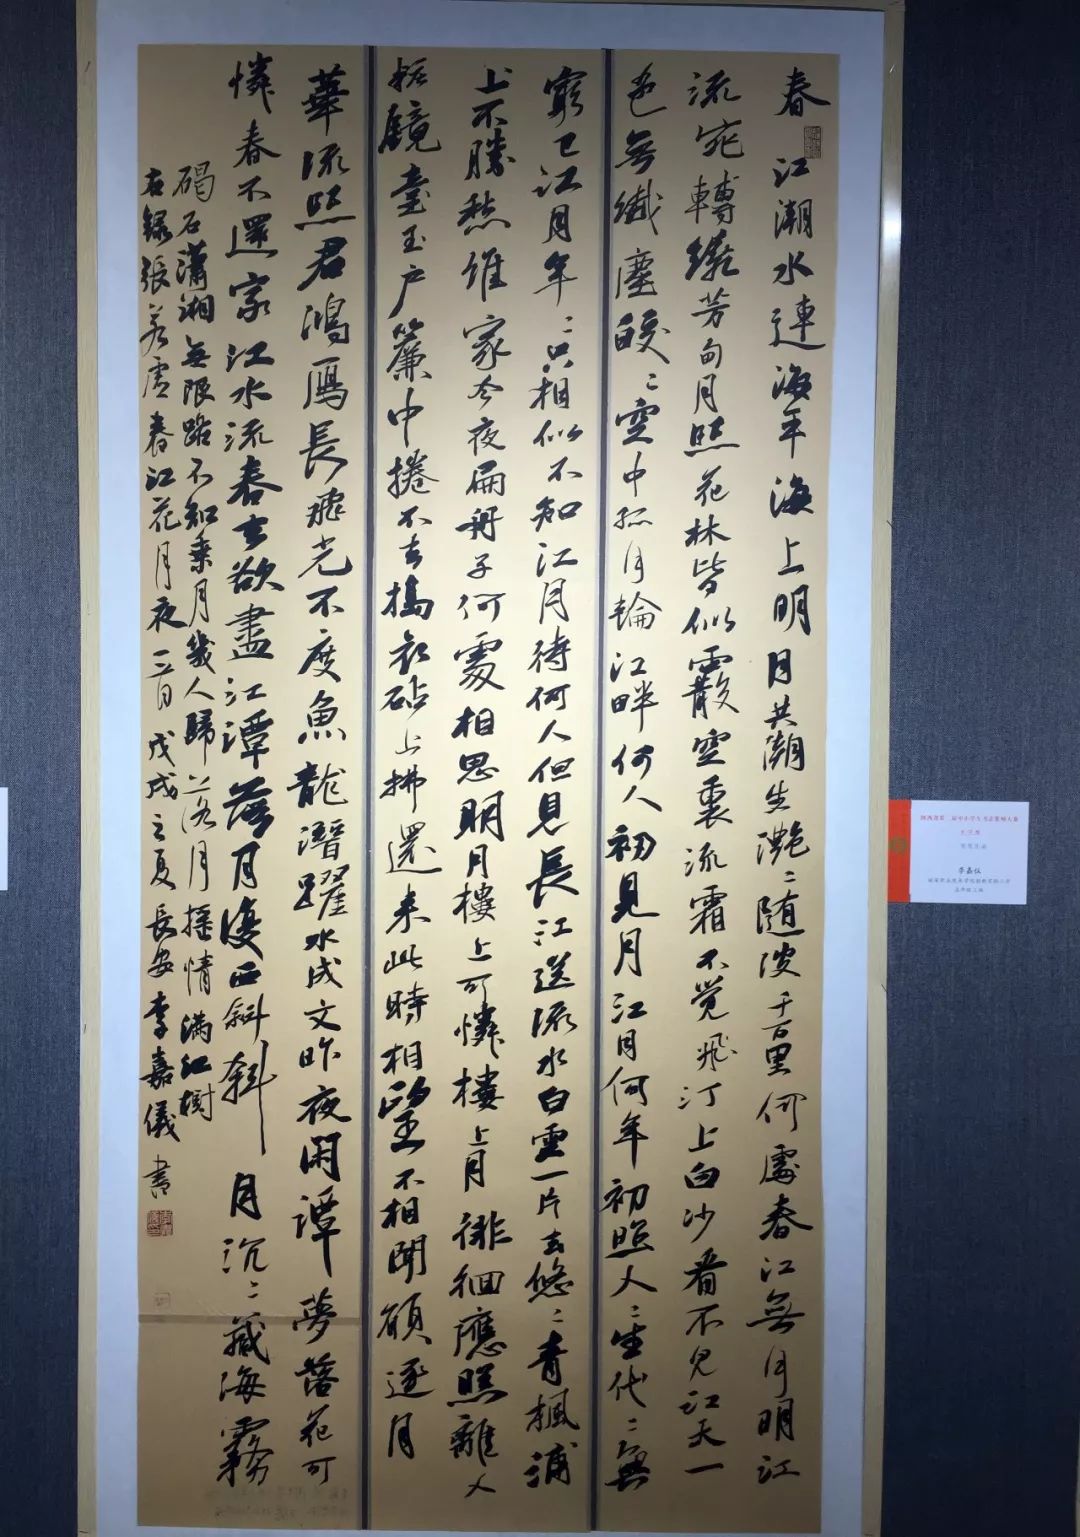 春江潮水連海平海上明月共潮生灧〻随波千百里何處春江無月明江
流宛轉繞芳甸月照花林皆似霰空裏流霜不覺飛汀上白沙看不見江天一
色無纖塵皎〻空中孤月輪江畔何人初見月江月何年初照人〻生代〻無
窮已江月年〻只相似不知江月待何人但見長江送流水白雲一片去悠〻青楓浦
上不勝愁誰家今夜扁舟子何處相思明月樓上可憐樓上月徘徊應照離人
粧鏡臺玉户簾中捲不去搗衣砧上拂還来此時相望不相聞願逐月
華流照君鴻雁長飛光不度魚龍潛躍水成文昨夜閑潭夢落花可
憐春不還家江水流春去欲盡江潭落月復西斜斜月沉〻藏海霧
碣石瀟湘無限路不知乘月幾人歸落月摇情滿江樹
右録張若虛春江花月夜一首戊戌之夏長安李嘉儀書
李嘉仪